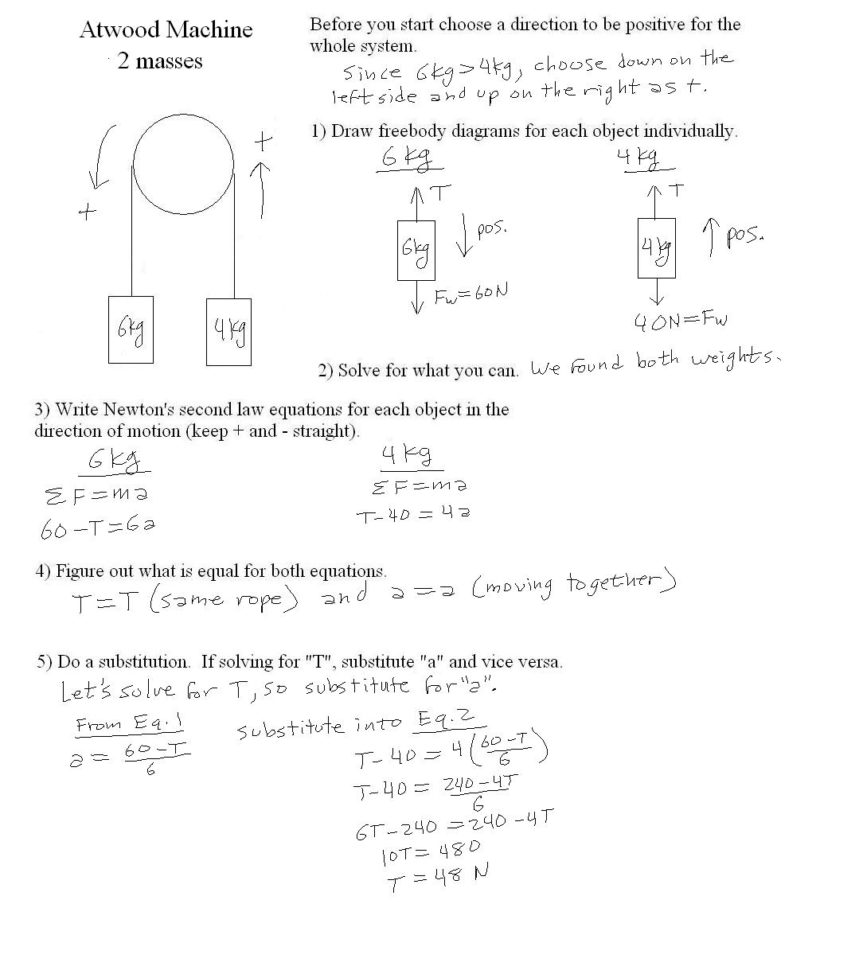 Atwood Machine
2 masses
Before you start choose a direction to be positive for the
whole system.
Since 6kg>4kg, choose down on the
left side and up on the right as +.
+
+
6kg
4kg
1) Draw freebody diagrams for each object individually.
6 kg
4 kg
T
T
6kg
pos.
4 kg
pos.
Fw=60N
40N=Fw
2) Solve for what you can. We found both weights.
3) Write Newton's second law equations for each object in the
direction of motion (keep + and - straight).
6kg
4 kg
ΣF=ma
ΣF=ma
60-T=6a
T-40=4a
4) Figure out what is equal for both equations.
T=T (same rope) and a=a (moving together)
5) Do a substitution. If solving for "T", substitute "a" and vice versa.
Let's solve for T, so substitute for "a".
From Eq.1
substitute into Eq.2
a = 60-T
6
T-40=4(60-T)
6
T-40= 240-4T
6
6T-240=240-4T
10T=480
T=48 N